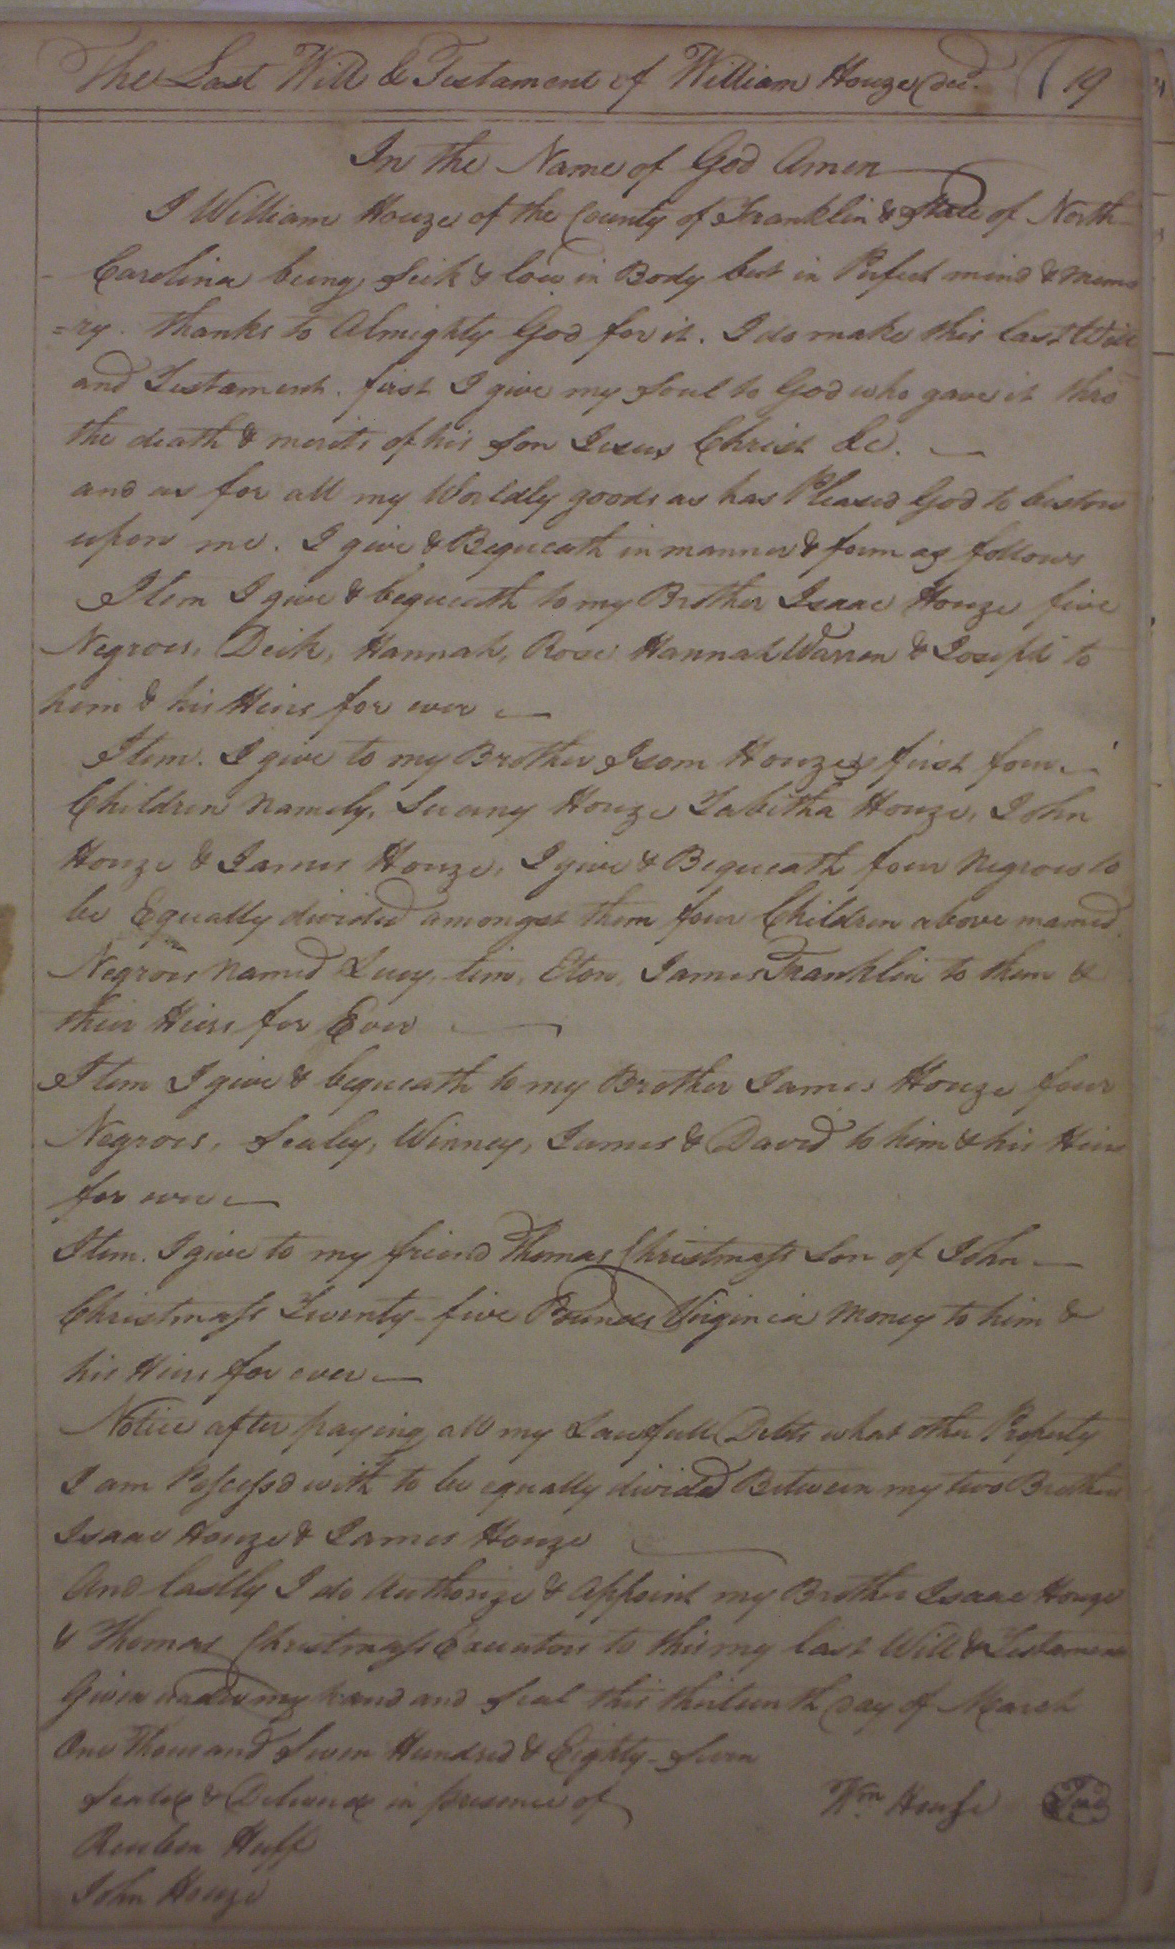 The Last Will & Testament of William Houze decd. 19
In the Name of God Amen
I William Houze of the County of Franklin & State of North
Carolina being Sick & low in Body but in Perfect mind & memo
=ry. thanks to Almighty God for it. I do make this last Will
and Testament. first I give my Soul to God who gave it thro
the death & merits of his Son Jesus Christ &c.
and as for all my Worldly goods as has Pleased God to bestow
upon me. I give & Bequeath in manner & form as follows
Item I give & bequeath to my Brother Isaac Houze five
Negroes, Dick, Hannah, Rose Hannah Warren & Joseph to
him & his Heirs for ever
Item. I give to my Brother Isom Houzes first four
Children Namely, Houze Tabitha Houze, John
Houze & James Houze, I give & Bequeath four Negroes to
be Equally divided amongst them four Children above mamed
Negroes Named Lucy, tim, Eton, James Franklin to them &
their Heirs for Ever
Item I give & bequeath to my Brother James Houze four
Negroes, Sealey, Winney, James & David to him & his Heirs
for ever
Item. I give to my friend Thomas Christmass Son of John
Christmass Twenty-five Pounds Virginia Money to him &
his Heirs for ever
Notice after paying all my Lawfull Debts what other Property
I am Possessd with to be equally divided Between my two Brothers
Isaac Houze & James Houze
And lastly I do Authorize & Appoint my Brother Isaac Houze
& Thomas Christmass Executors to this my last Will & Testament
Given under my hand and Seal this thirteenth day of March
One Thousand Seven Hundred & Eighty-Seven
Sealed & Delivered in presence of Wm Houze Seal
Reuben Huff
John Houze